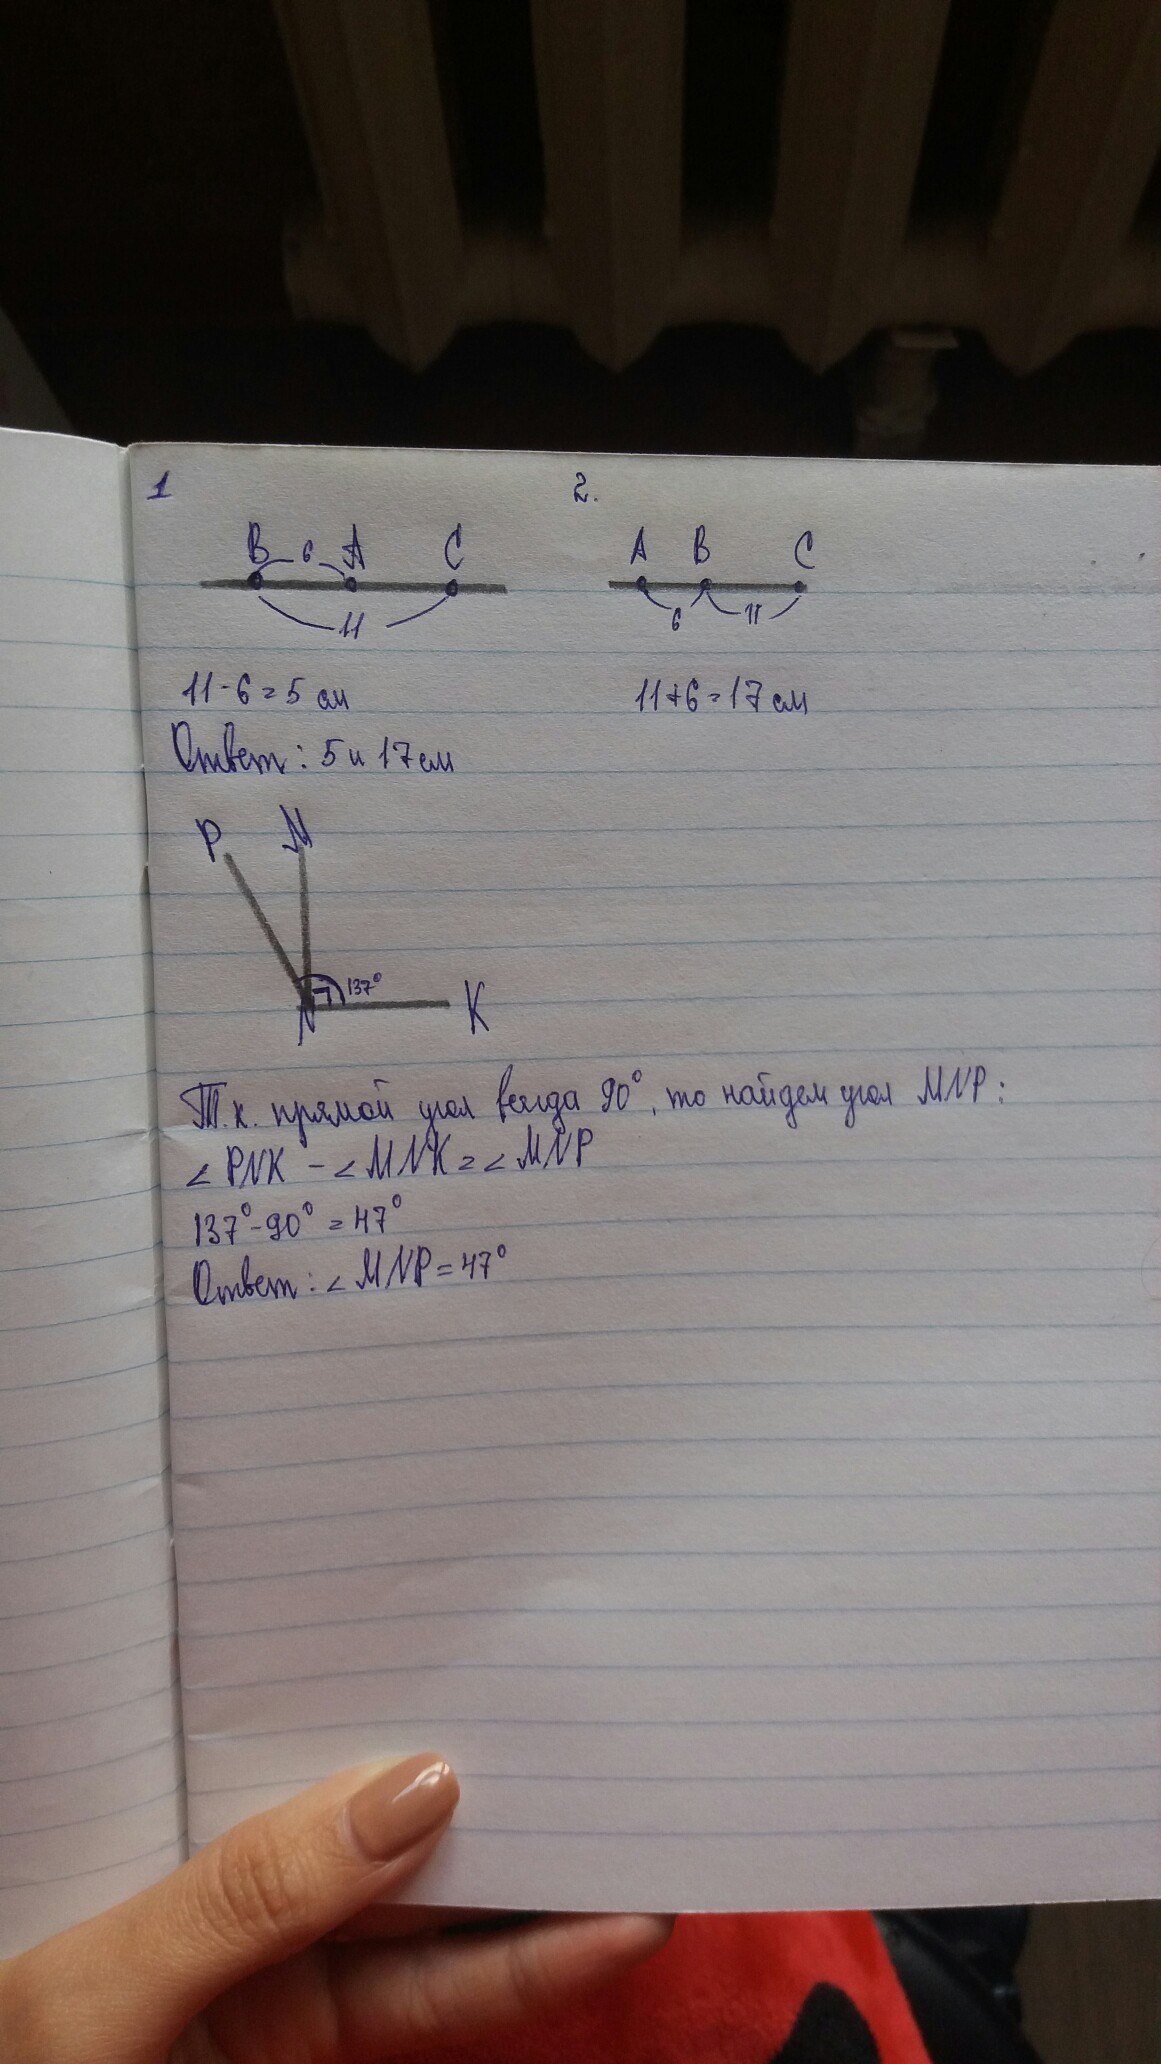 1
B 6 A C
11
11-6=5 см
2.
A B C
6 11
11+6=17 см
Ответ: 5 и 17 см
P M
137°
N K
Т.к. прямой угол всегда 90°, то найдем угол MNP:
∠ PNK - ∠ MNK = ∠ MNP
137°-90° = 47°
Ответ: ∠ MNP = 47°